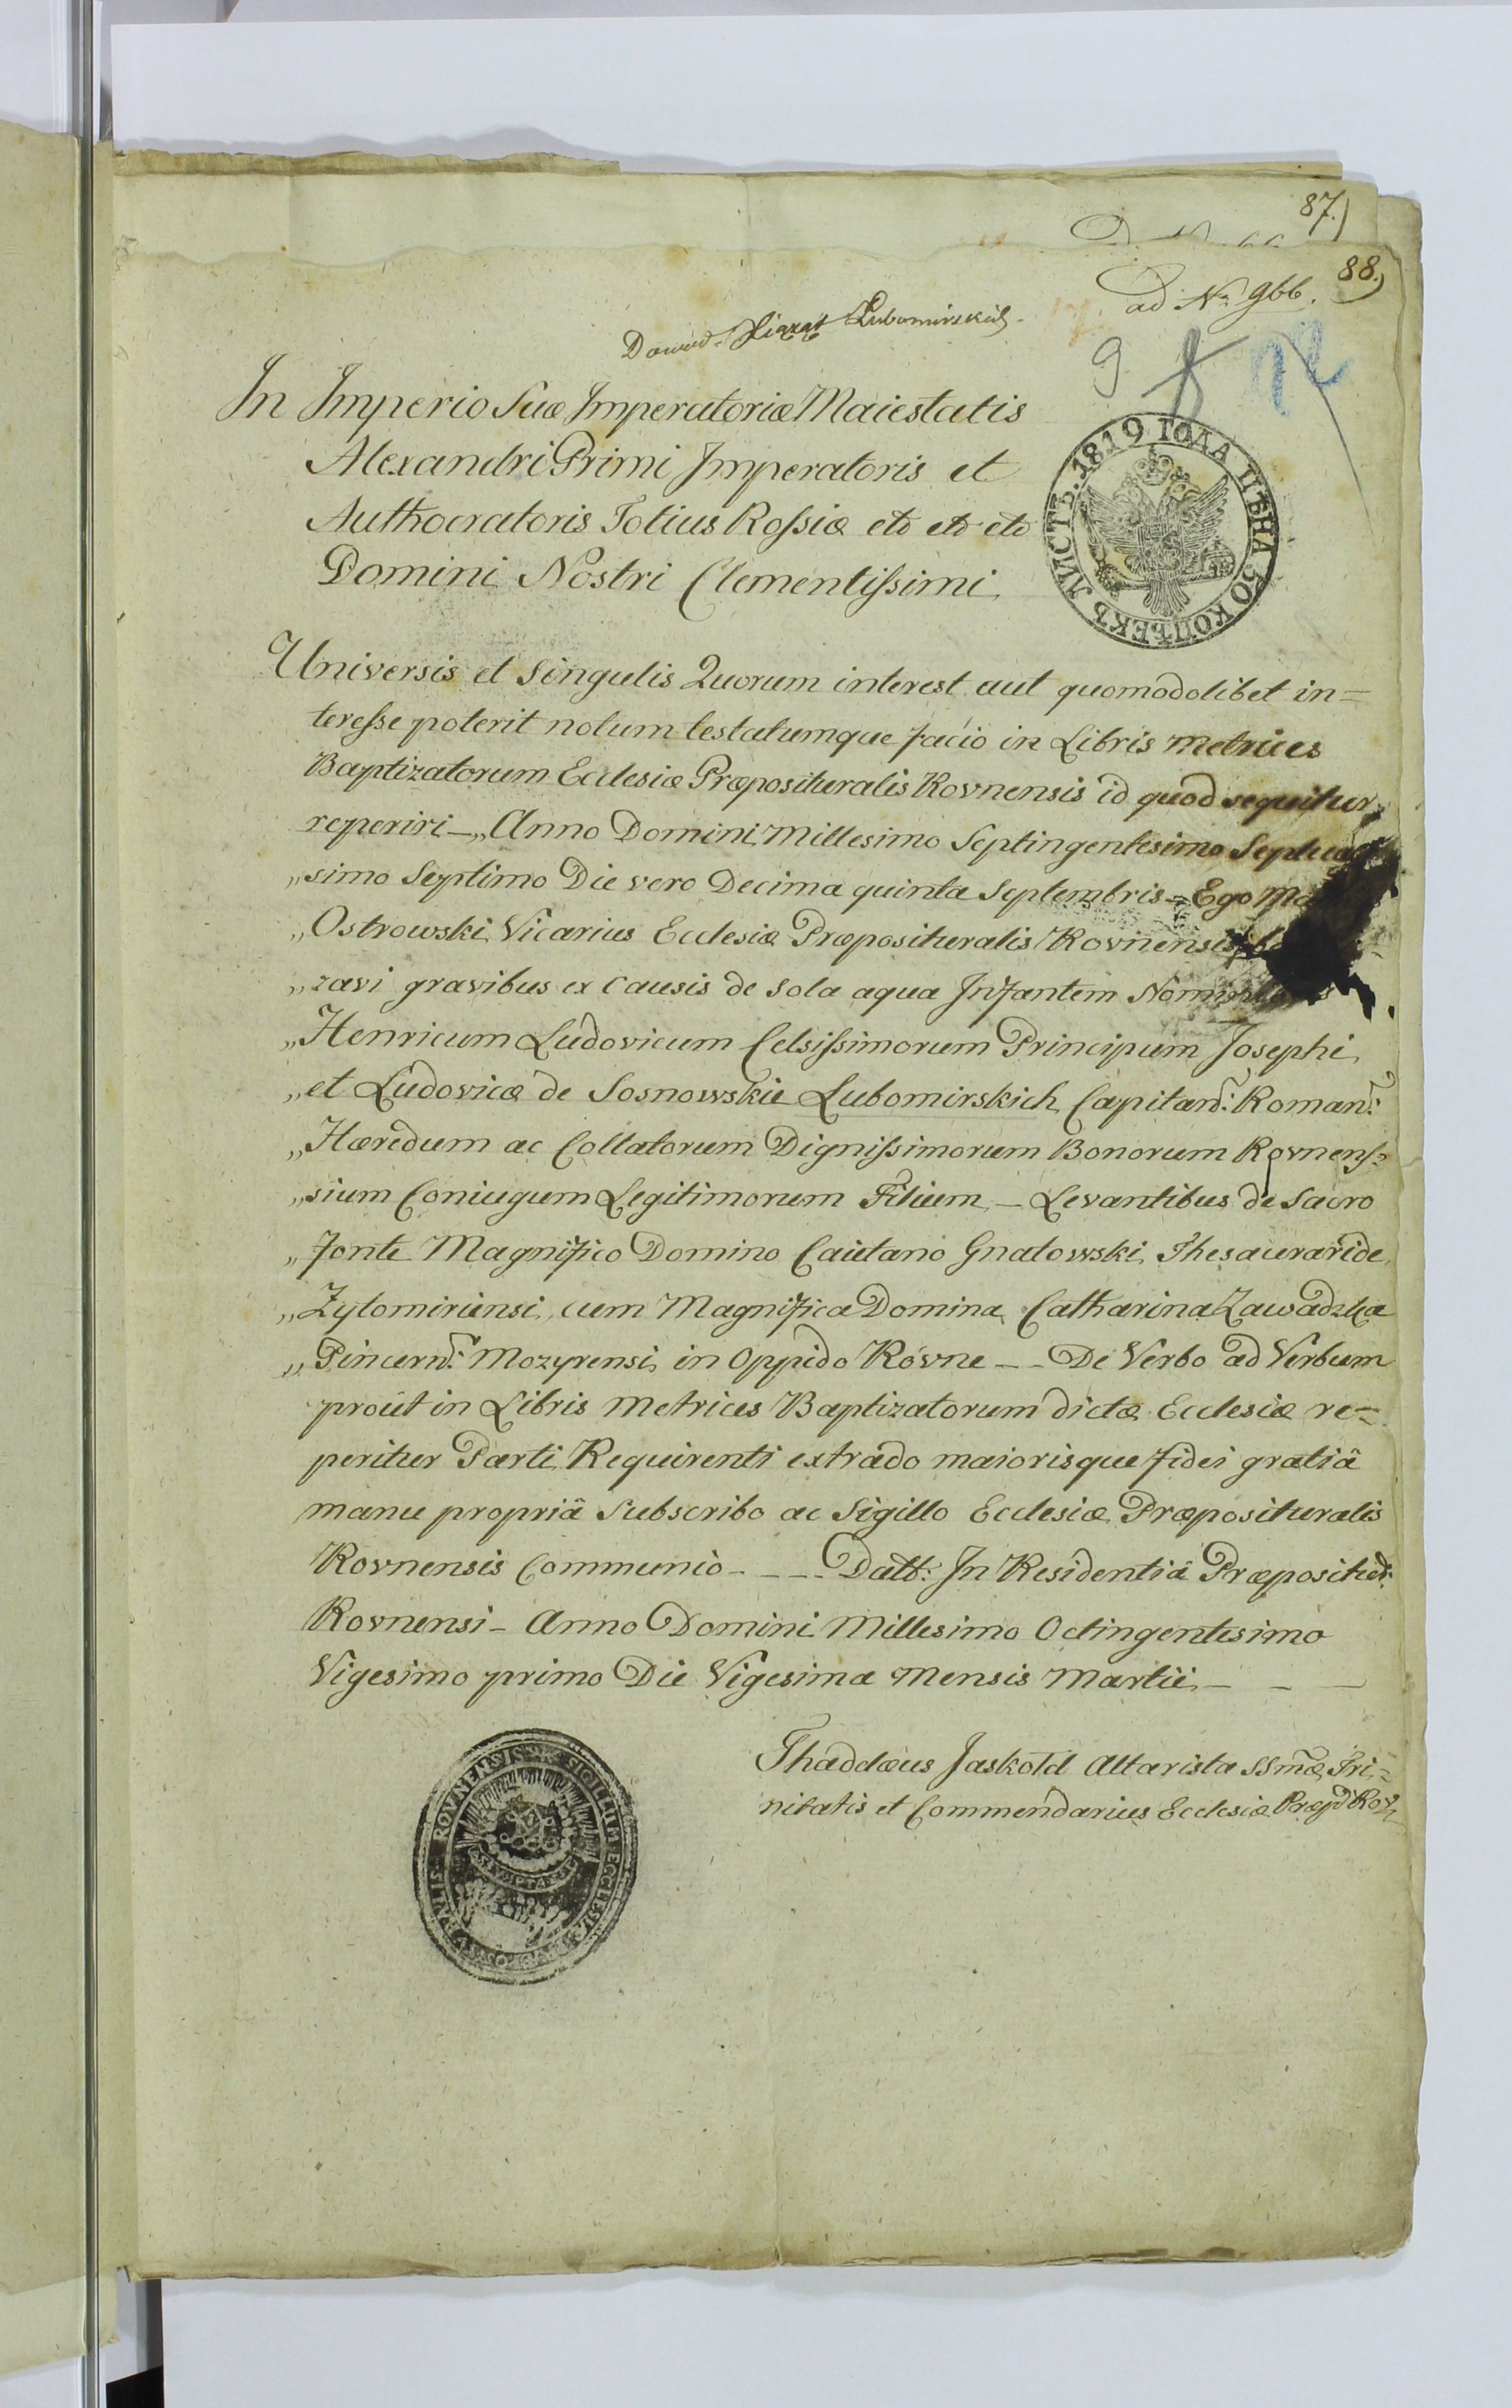 87.)
88.)
ad Nr 966.
Dowod Xiąząt Lubomirskich
9
In Imperio Suæ Imperatoriæ Maiestatis
Alexandri Primi Imperatoris et
Authocratoris Totius Rossiæ etc etc etc
Domini Nostri Clementissimi
ЛИСТЪ. 1819 ГОДА ЦѢНА 50 КОПѢЕКЪ
Universis et Singulis Quorum interest aut quomodolibet in=
teresse poterit notum testatumque facio in Libris Metrices
Baptizatorum Ecclesiæ Præposituralis Rovnensis id quod sequitur
reperiri — „Anno Domini Millesimo Septingentesimo
„simo Septimo Die vero Decima quinta Septembris = Ego
„Ostrowski Vicarius Ecclesiæ Præposituralis Rovnensis
„zavi gravibus ex Causis de sola aqua Infantem
„Henricum Ludovicum Celsissimorum Principum Josephi
„et Ludovicæ de Sosnowskie Lubomirskich Capitan: Roman:
„Hæredum ac Collatorum Dignissimorum Bonorum Rovnens=
„sium Coniugum Legitimorum Filium — Levantibus de Sacro
„fonte Magnifico Domino Caietano Gnatowski Thesauraride
„Zytomiriensi, cum Magnifica Domina Catharina Zawadzka
„Pincern: Mozyrensi in Oppido Równe — — De Verbo ad Verbum
proût in Libris Metrices Baptizatorum dictæ Ecclesiæ re=
peritur Parti Requirenti extrado maiorisque fidei gratiâ
manu propriâ Subscribo ac Sigillo Ecclesiæ Præposituralis
Rovnensis Communio - - - - Datt: In Residentiâ Præpositud:
Rovnensi - Anno Domini Millesimo Octingentesimo
Vigesimo primo Die Vigesima Mensis Martii — — —
Thaddæus Jaskołd Altarista SSmæ Tri=
nitatis et Commendarius Ecclesiæ Præp: Rov
SIGILLUM ECCLESIÆ PRÆPOSITURALIS ROVNENSIS